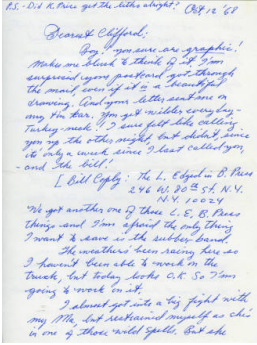 P.S. - Did K. Price get the liths alright? Oct. 12 '68
Dearest Clifford;
Boy! you sure are graphic!
Makes me blush to think of it. I'm
surprised your postcard got through
the mail, even if it is a beautiful
drawing. And your letter sent me on
any tin ear. You get wilder everyday -
Turkey neck! I sure felt like calling
you up the other night, but didn't, since
it's only a week since I last called you,
and the bill!
[Bill Copley: The L. Edged in B. Press
246 W. 80th St. N.Y.
N.Y. 10024
We got another one of those L.E.B. Press
things and I'm afraid the only thing
I want to save is the rubber band.
The weather's been racing here so
I haven't been able to work on the
truck, but today looks O.K. So I'm
going to work on it.
I almost got into a big fight with
my Ma, but restrained myself as she's
in one of those wild spells. But she